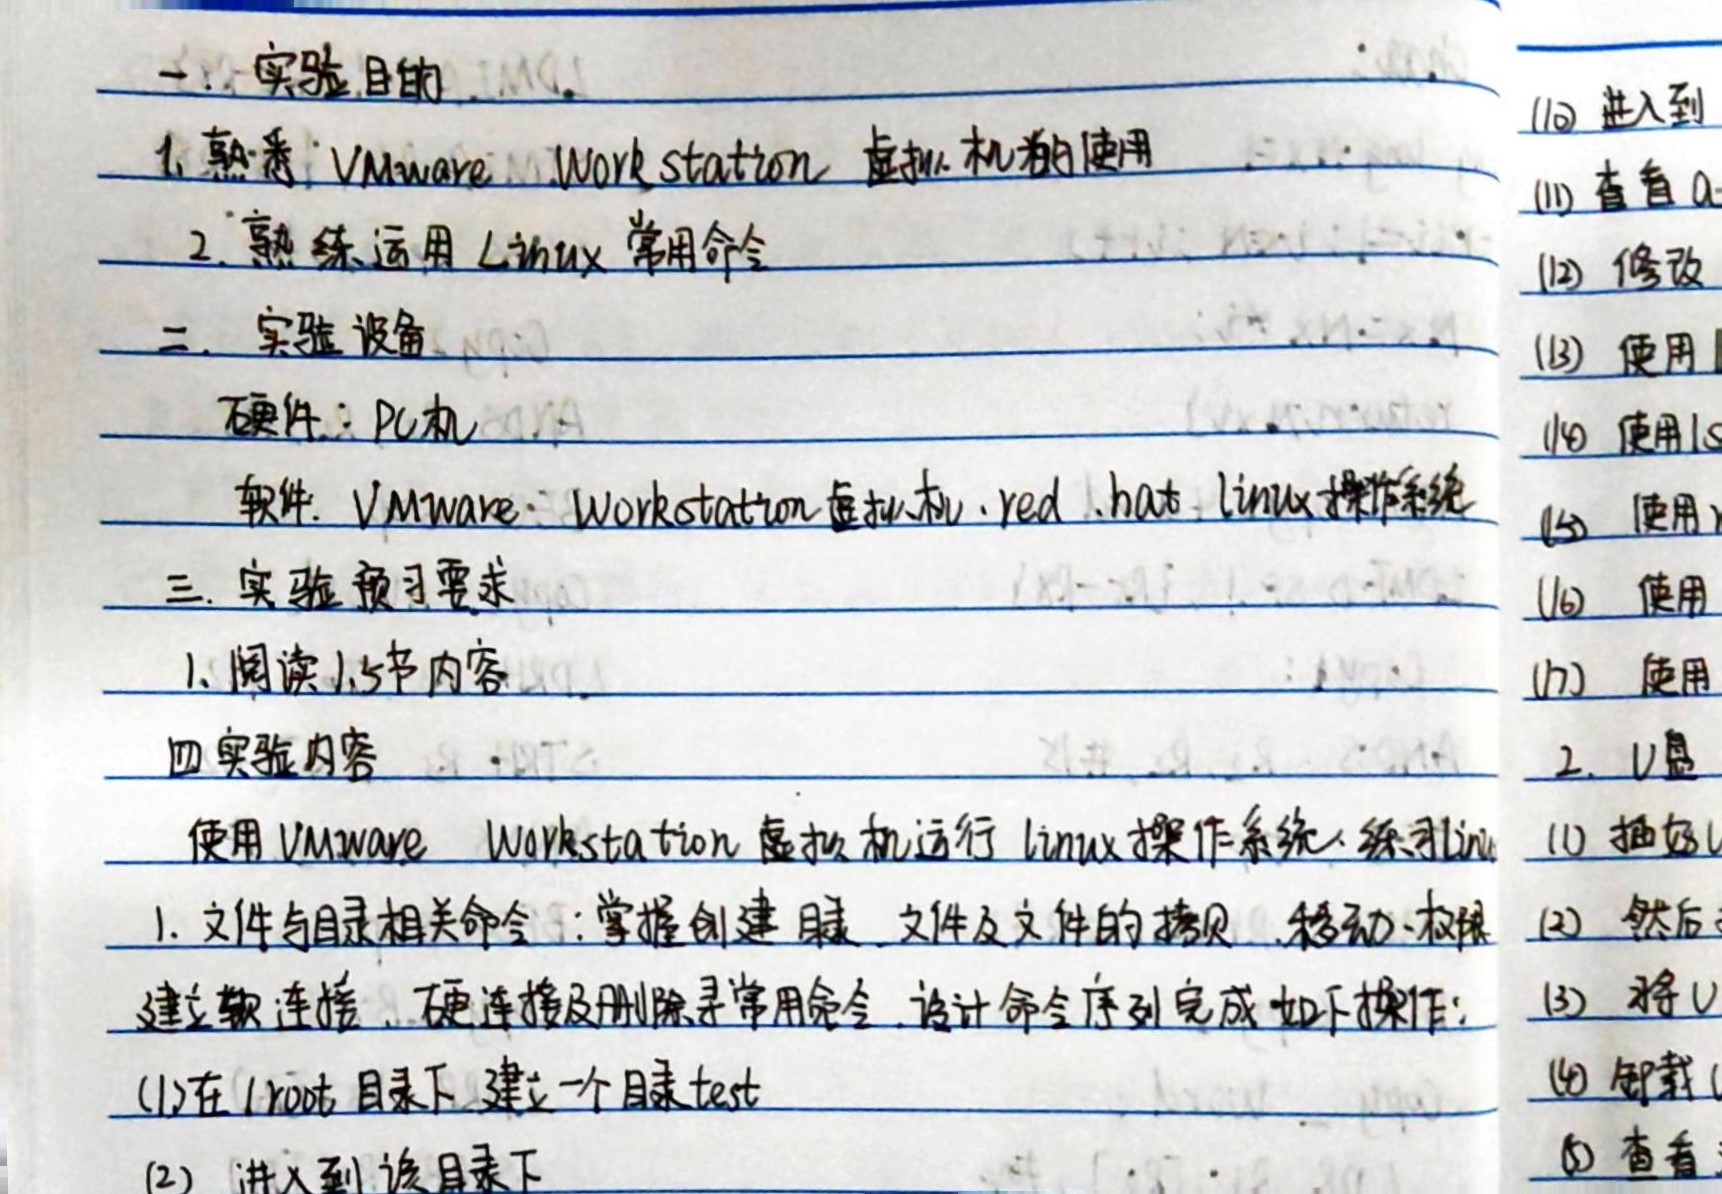 一. 实验目的
1. 熟悉 VMware Workstation 虚拟机的使用
2. 熟练运用 Linux 常用命令
二. 实验设备
硬件: PC机
软件: VMware Workstation 虚拟机、red hat linux 操作系统
三. 实验预习要求
1. 阅读1.5节内容
四 实验内容
使用 VMware Workstation 虚拟机运行 linux 操作系统、练习Linu
1. 文件与目录相关命令:掌握创建目录、文件及文件的拷贝、移动、权限
建立软连接、硬连接及删除寻常用命令、设计命令序列完成如下操作:
(1)在 /root 目录下建立一个目录 test
(2) 进入到该目录下
(10) 进入到
(11) 查看 a
(12) 修改
(13) 使用
(14) 使用ls
(15) 使用
(16) 使用
(17) 使用
2. U盘
(1) 插好U
(2) 然后
(3) 将U
(4) 卸载U
(5) 查看